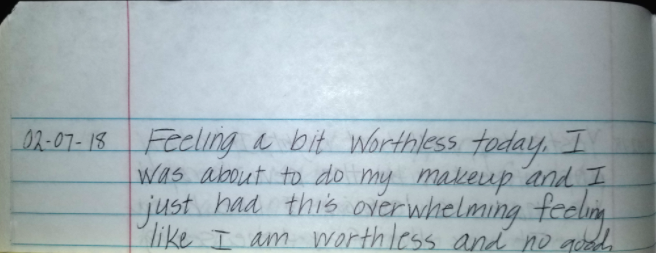 02-07-18 Feeling a bit worthless today. I
was about to do my makeup and I
just had this overwhelming feeling
like I am worthless and no good